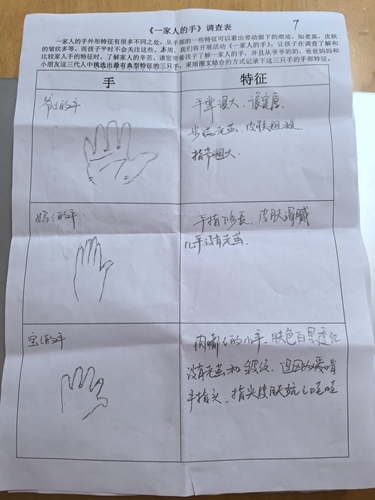 《一家人的手》调查表
7
一家人的手外形特征有很多不同之处，从手部的一些特征可以看出劳动留下的痕迹，如老茧，皮肤
的皱纹多等，而孩子平时不会关注这些，本周，我们将开展活动《一家人的手》，让孩子在调查了解和
比较家人手的特征时，了解家人的辛苦。请您带着孩子一起观察了解一家人的手，并且从爷爷奶奶、爸爸妈妈和
小朋友这三代人中挑选出最有典型特征的三只手，采用图文结合的方式记录下这三只手的手部特征。
手
特征
爷爷的手
手掌宽大、很宽厚
老茧、皮肤粗糙
指节粗大
妈妈的手
手指修长、皮肤细腻
几乎没有老茧
宝宝的手
肉嘟嘟的小手、肤色白里透红
没有老茧和皱纹、还因为爱啃
手指头、指尖皮肤坑坑洼洼